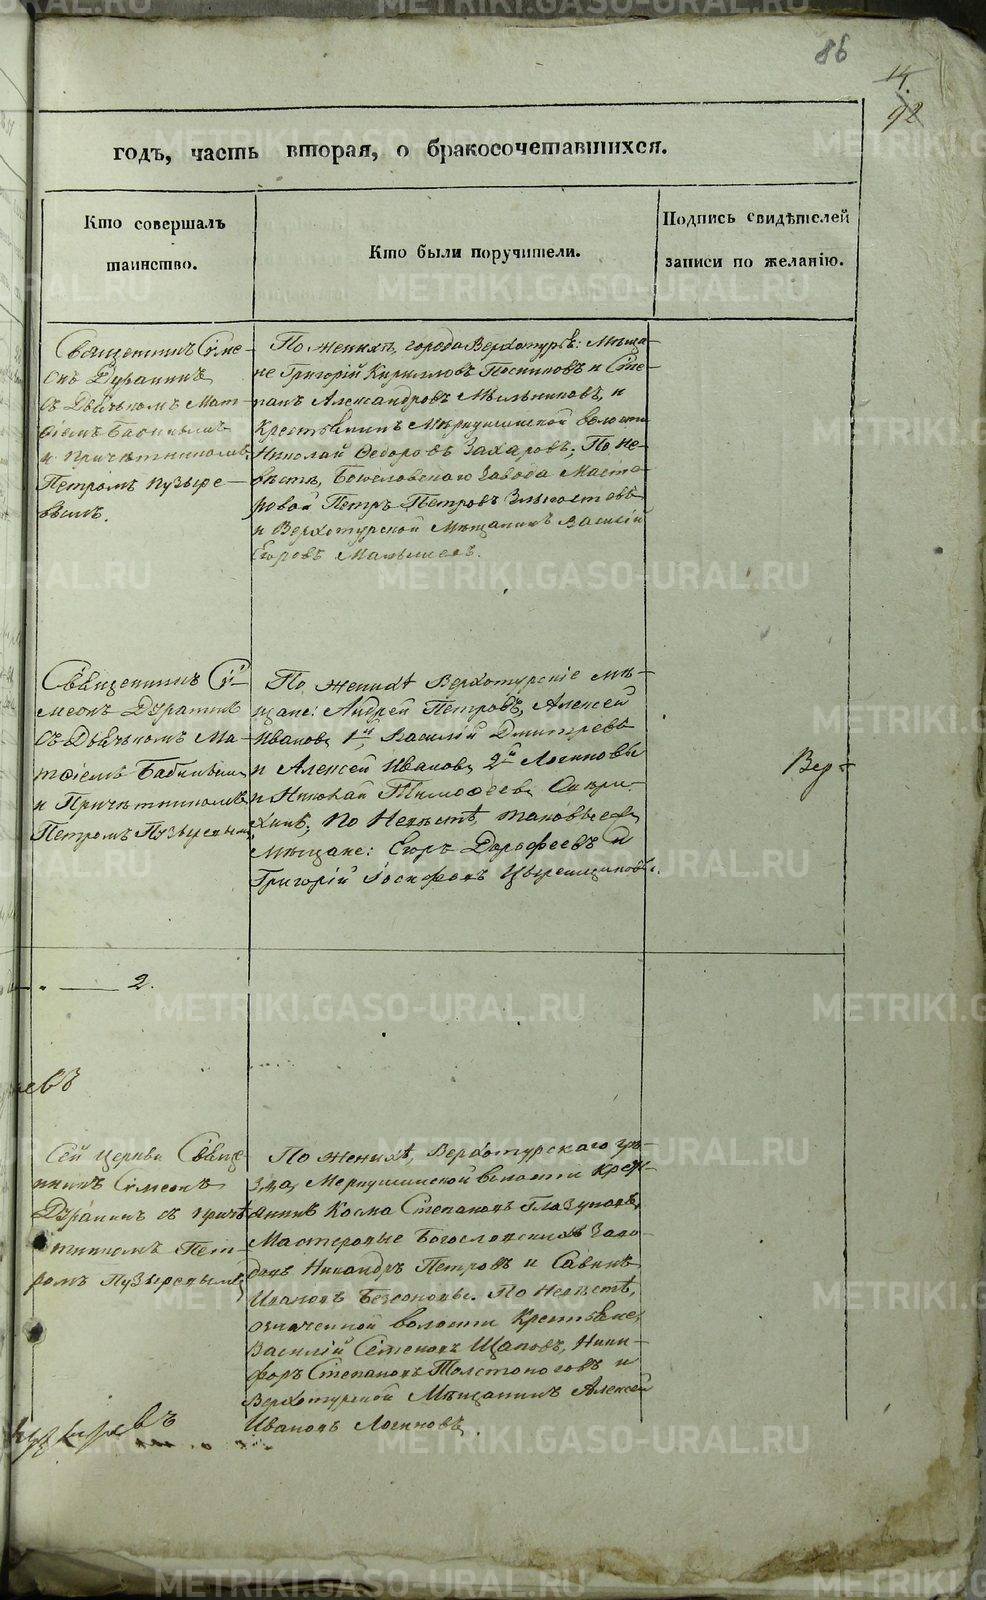 86
14
92
годъ, часть вторая, о бракосочетавшихся.
Кто совершалъ
таинство.
Кто были поручители.
Подпись свидѣтелей
записи по желанію.
Священникъ Симе-
онъ Дуранинъ
съ Дьячкомъ Мат-
ѳіемъ Бабинымъ
и Причетникомъ
Петромъ Пузыре-
вымъ.
По женихѣ, города Верхотурья: Мѣща-
не Григорій Кирилловъ Постниковъ и Сте-
панъ Александровъ Мѣльниковъ, и
Крестьянинъ Меркушинской волости
Николай Ѳедоровъ Захаровъ; По не-
вѣстѣ, Богословскаго Завода Масте-
ровой Петръ Петровъ
и Верхотурской Мѣщанинъ Василій
Егоровъ
Священникъ Си-
меонъ Дуранинъ
съ Дьячкомъ Ма-
тѳіемъ Бабинымъ
и Причетникомъ
Петромъ Пузыревымъ
По женихѣ Верхотурскіе мѣ-
щане: Андрей Петровъ, Алексей
Ивановъ 1й, Василій Дмитревъ
и Алексей Ивановъ 2й Логиновы
и Николай Тимоѳеевъ
По Невѣстѣ, таковые же
Мѣщане: Егоръ Дорофеевъ и
Григорій
Вер-
2.
евъ
Сей церкви Свяще-
нникъ Симеонъ
Дуранинъ съ приче-
тникомъ Пет-
ромъ Пузыревымъ
По женихѣ, Верхотурскаго уѣ-
зда, Меркушинской волости Крест-
янинъ Косма Степановъ Глазуновъ,
Мастеровые Богословскихъ Заво-
довъ Никандръ Петровъ и Савинъ
Ивановъ Безсоновы. По Невѣстѣ,
означенной волости Крестьяне,
Василій Семеновъ Щаповъ, Ники-
форъ Степановъ Толстоноговъ и
Верхотурской Мѣщанинъ Алексей
Ивановъ Логиновъ.
METRIKI.GASO-URAL.RU